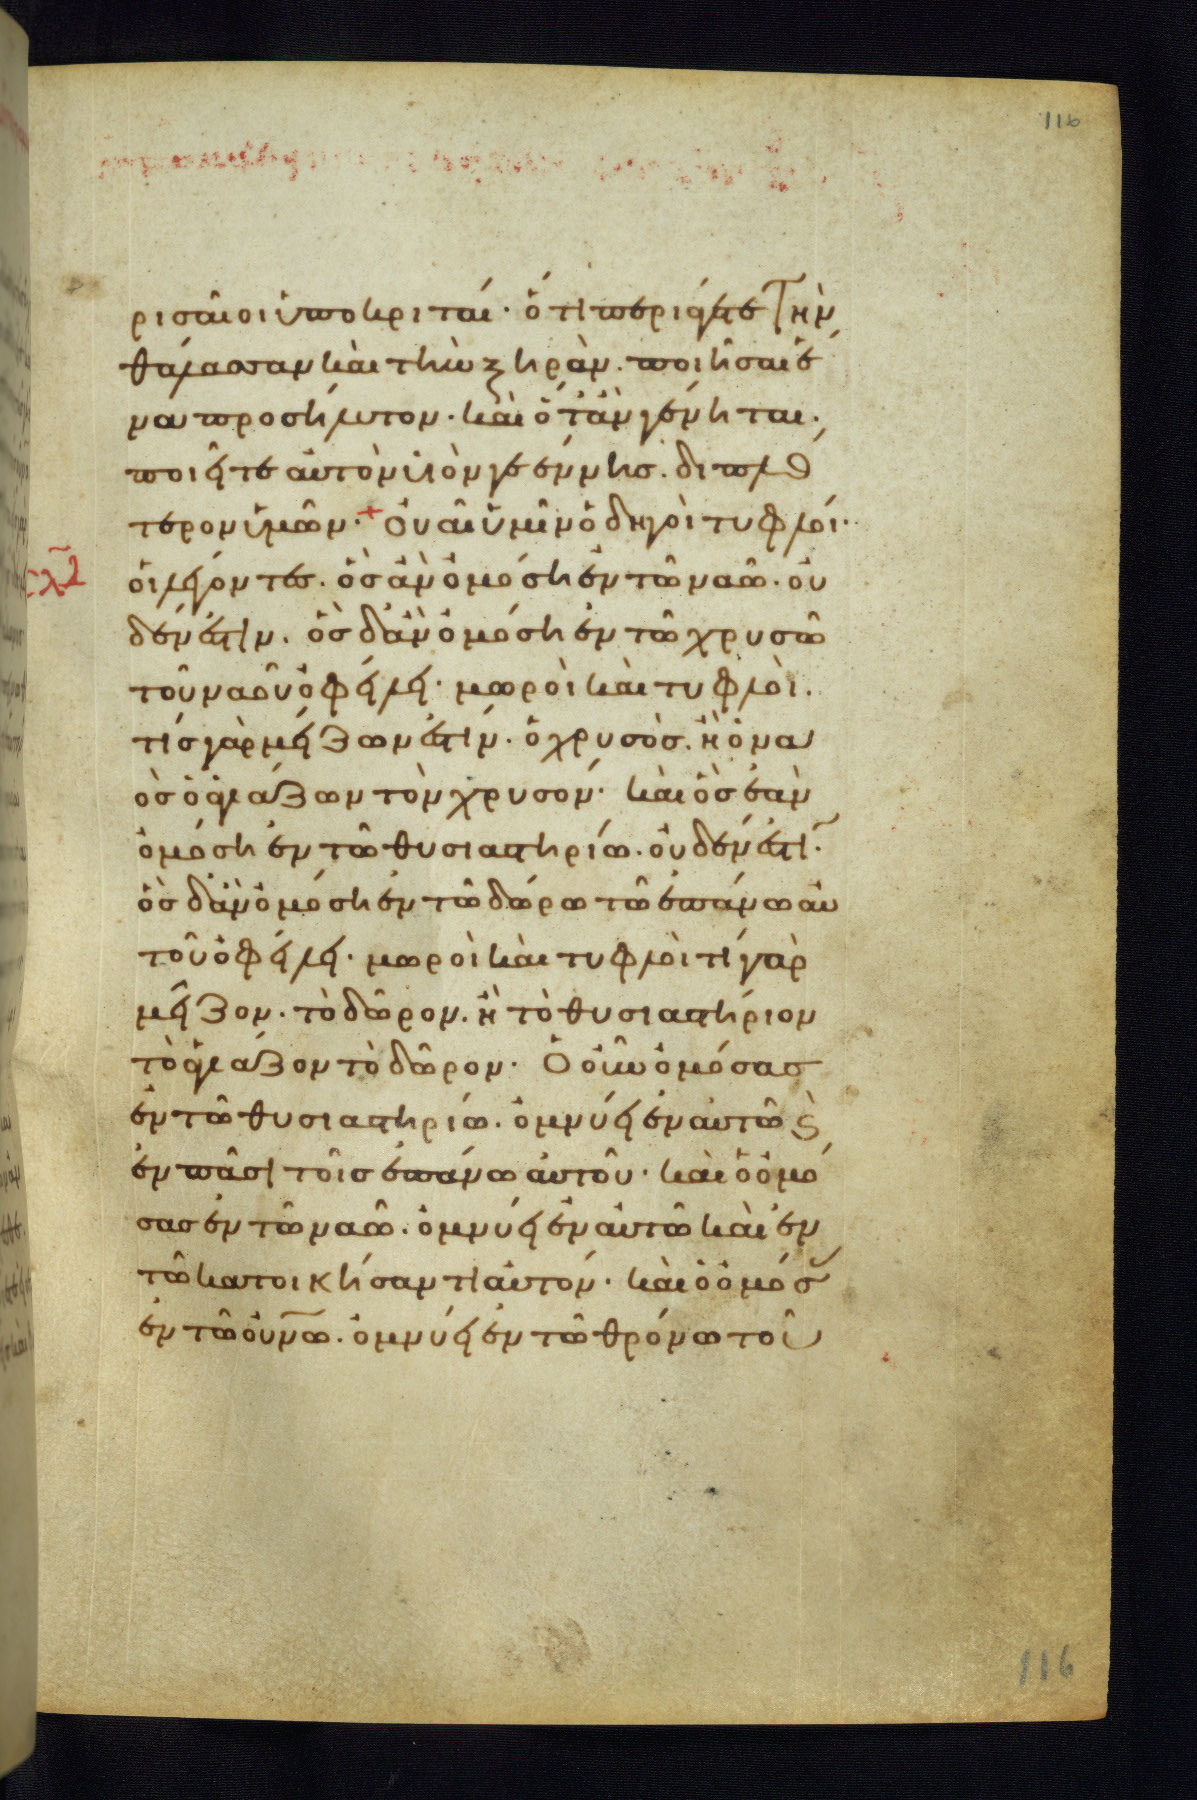 116
ρισαῖοι ὑποκριταί· ὅτι περιάγετε τὴν
θάλασσαν καὶ τὴν ξηρὰν. ποιῆσαι ἕ
να προσήλυτον· καὶ ὅταν γένηται.
ποιεῖτε αὐτὸν υἱὸν γεέννησ. διπλό
τερον ὑμῶν·+ Ουαὶ ὑμῖν ὁδηγοὶ τυφλοί·
σλβ
οἱ λέγοντες. ὃσ ἂν ὀμόση ἐν τῶ ναῶ. οὐ
δέν ἐστιν. ὃσ δ' ἂν ὀμόση ἐν τῶ χρυσῶ
τοῦ ναοῦ ὀφείλει· μωροὶ καὶ τυφλοὶ.
τίσ γὰρ μείζων ἐστίν. ὁ χρυσὸσ. ἢ ὁ να
ὸσ ὁ ἁγιάζων τὸν χρυσόν· καὶ ὃσ ἐὰν
ὀμόση ἐν τῶ θυσιαστηρίω. οὐδέν ἐστι·
ὃσ δ' ἂν ὀμόση ἐν τῶ δώρω τῶ ἐπάνω αὐ
τοῦ ὀφείλει· μωροὶ καὶ τυφλοὶ τί γὰρ
μεῖζον. τὸ δῶρον. ἢ τὸ θυσιαστήριον
τὸ ἁγιάζον τὸ δῶρον· Ὁ οὖν ὀμόσασ
ἐν τῶ θυσιαστηρίω. ὀμνύει ἐν αὐτῶ ϗ
ἐν πᾶσι τοῖσ ἐπάνω αὐτοῦ· καὶ ὁ ὀμό
σασ ἐν τῶ ναῶ. ὀμνύει ἐν αὐτῶ καὶ ἐν
τῶ κατοικήσαντι αὐτόν· καὶ ὁ ὀμόσ
ἐν τῶ οὐνω. ὀμνύει ἐν τῶ θρόνω τοῦ
116